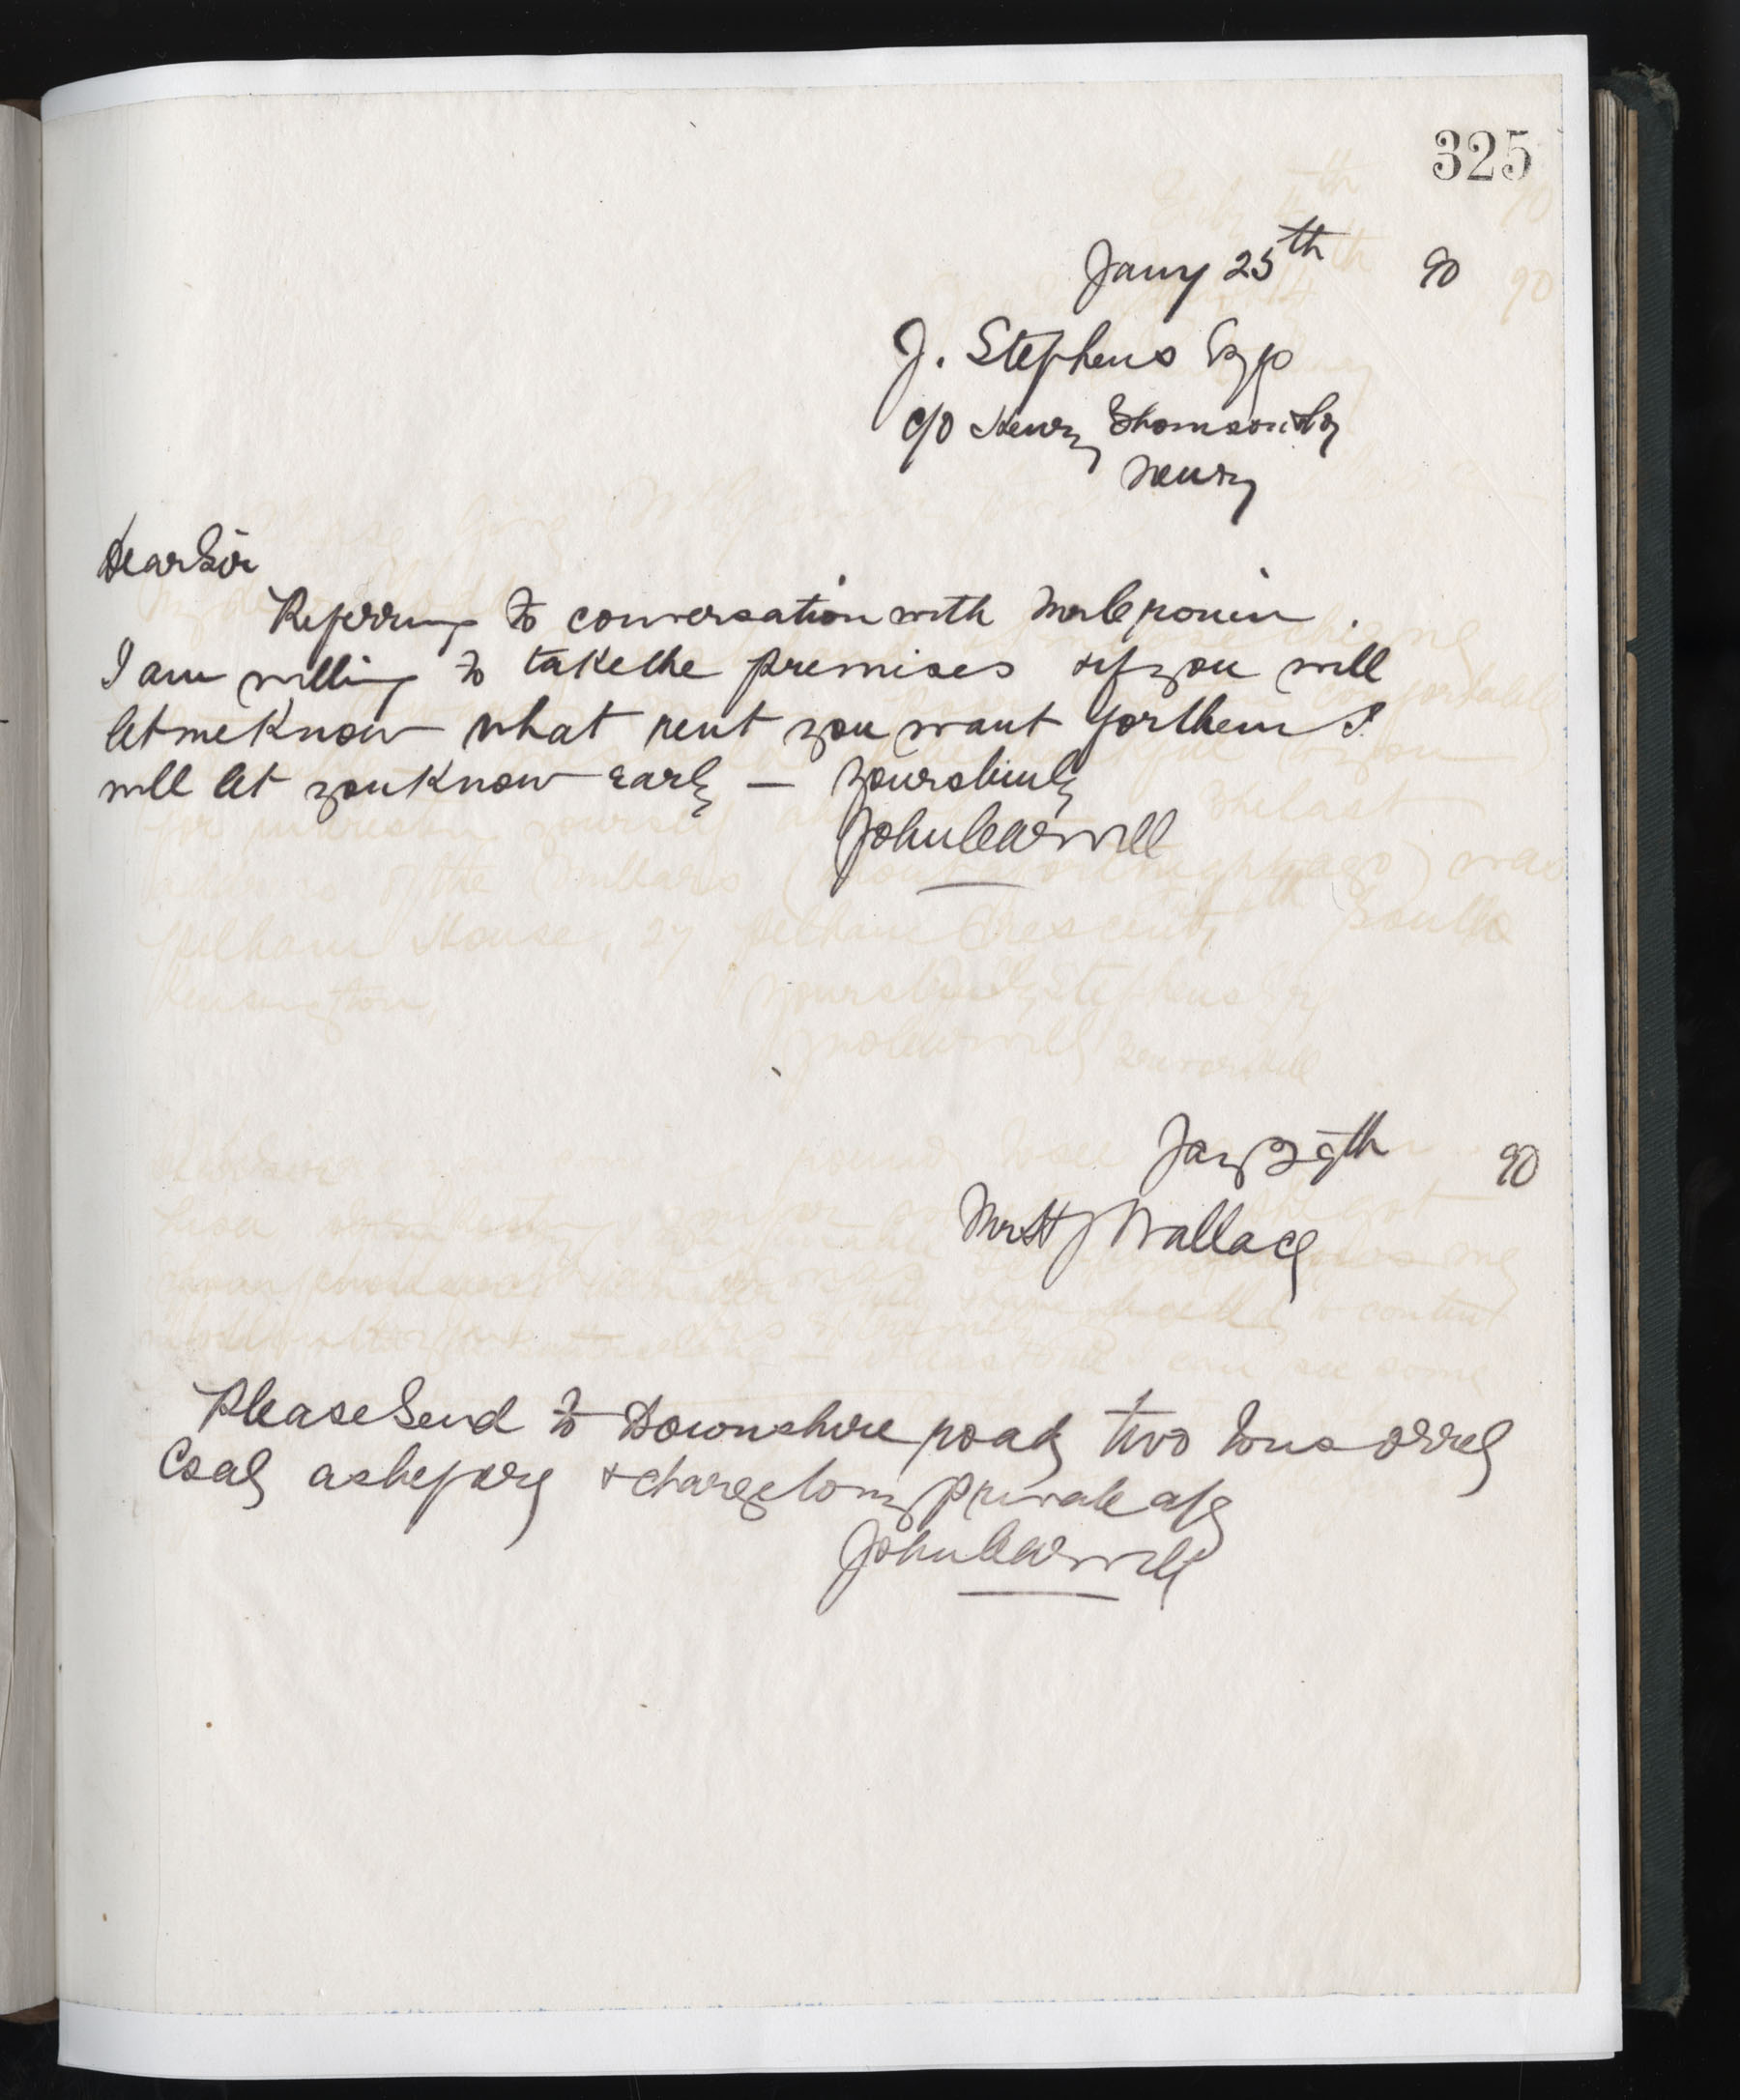 325
Jany 25th 90
J. Stephens Esq
c/o Henry Thomson Esq
Newry
Dear Sir
Referring to conversation with Mr Cronin
I am willing to take the premises & if you will
let me know what rent you want for them I
will let you know early — Yours truly
John
Jany 29th 90
Mr H J Wallace
Please Send to Downshire road two tons orrel
Coal as before & charge to my private a/c
John